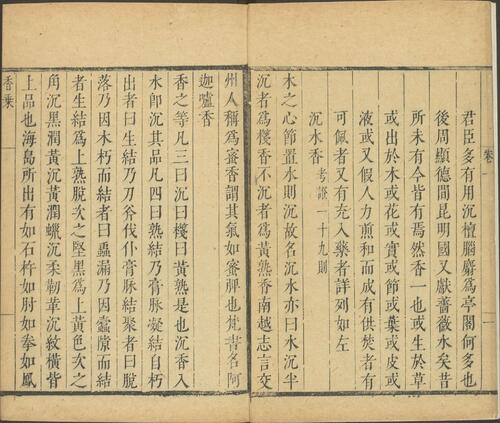 君臣多有用沉檀腦麝爲亭閣何多也
後周顯德間昆明國又獻薔薇水矣昔
所未有今皆有焉然香一也或生於草
或出於木或花或實或節或葉或皮或
液或又假人力煎和而成有供焚者有
可佩者又有充入藥者詳列如左
沉水香 考證一十九則
木之心節置水則沉故名沉水亦曰水沉半
沉者爲棧香不沉者爲黃熟香南越志言交
卷一 一
州人稱爲蜜香謂其氣如蜜脾也梵書名阿
迦嚧香
香之等凡三曰沉曰棧曰黃熟是也沉香入
水卽沉其品凡四曰熟結乃膏脉凝結自朽
出者曰生結乃刀斧伐仆膏脉結聚者曰脫
落乃因木朽而結者曰蟲漏乃因蠹隙而結
者生結爲上熟脫次之堅黑爲上黃色次之
角沉黑潤黃沉黃潤蠟沉柔韌革沉紋橫皆
上品也海島所出有如石杵如肘如拳如鳳
香乘